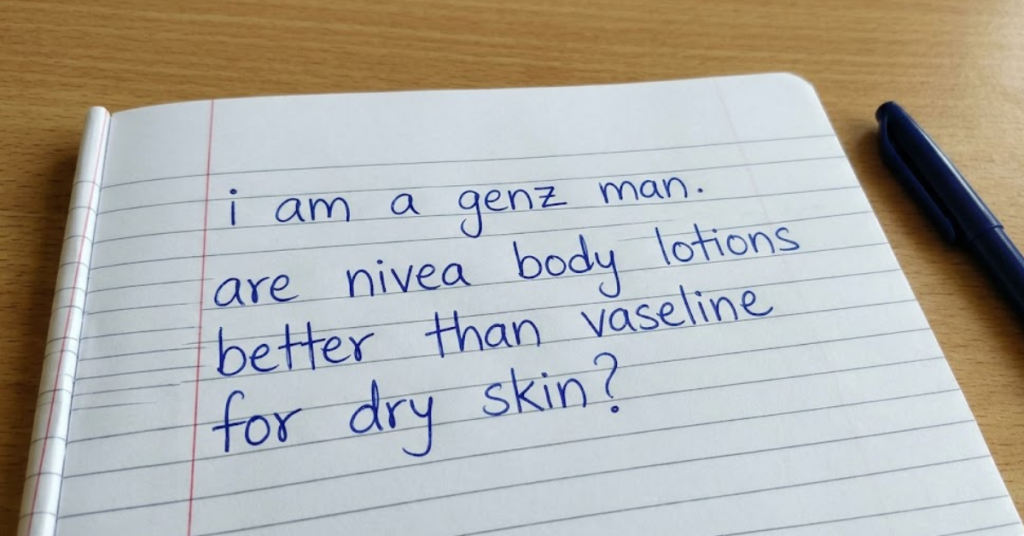 i am a genz man.
are nivea body lotions
better than vaseline
for dry skin?